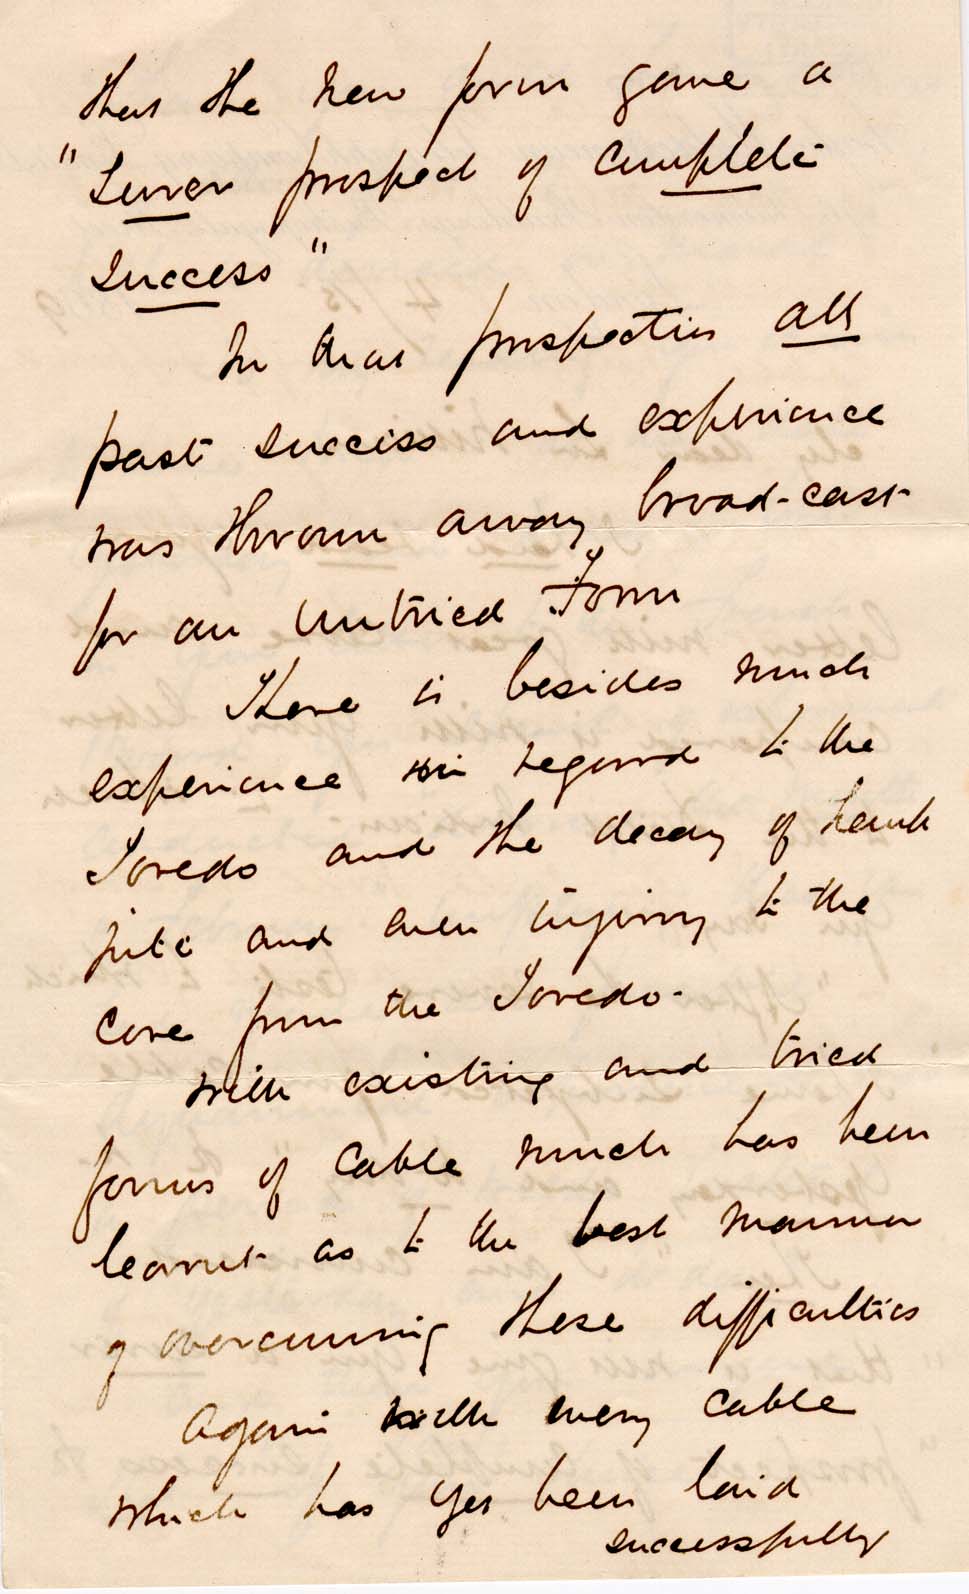 that the new form gave a
"surer prospect of complete
success"
In that prospectus all
past success and experience
was thrown away broad-cast
for an untried Form
There is besides much
experience in regard to the
Toredo and the decay of hemp
jute and even injury to the
core from the Toredo.
With existing and tried
forms of Cable much has been
learnt as to the best manner
of overcoming these difficulties
Again with every cable
which has yet been laid
successfully